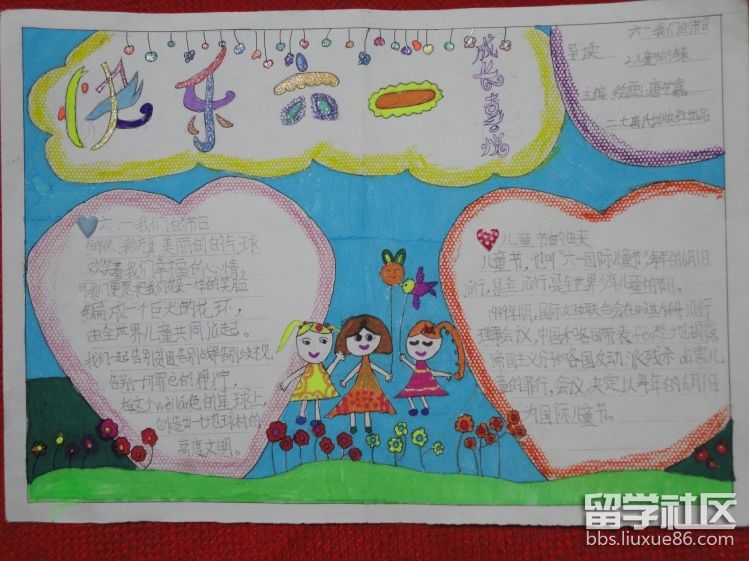 快乐六一
成长喜悦
六一我们的节日
导读
2儿童节的由来
主编 绘画
六.一我们的节日
鲜花、彩灯 美丽的的气球
着我们幸福的心情。
编成一个巨大的花环,
由全世界儿童共同 起。
我们一起告别贫困告别战争告别
告别一切罪色的狰狞,
在这个wèi蓝色的星球上,
创造出一个地球村的
高度文明。
儿童节的由来
儿童节,也叫"六一国际儿童节"每年的6月1日
举行,是全世界少年儿童的节日。
1949年11月,国际妇女联合会在 举行
理事会议,中国和各国代表fèn怒地揭露
了帝国主义分子和各国反动派残杀、 害儿
童的罪行,会议决定以每年的6月1日
为国际儿童节。
留学社区
bbs.liuxue86.com